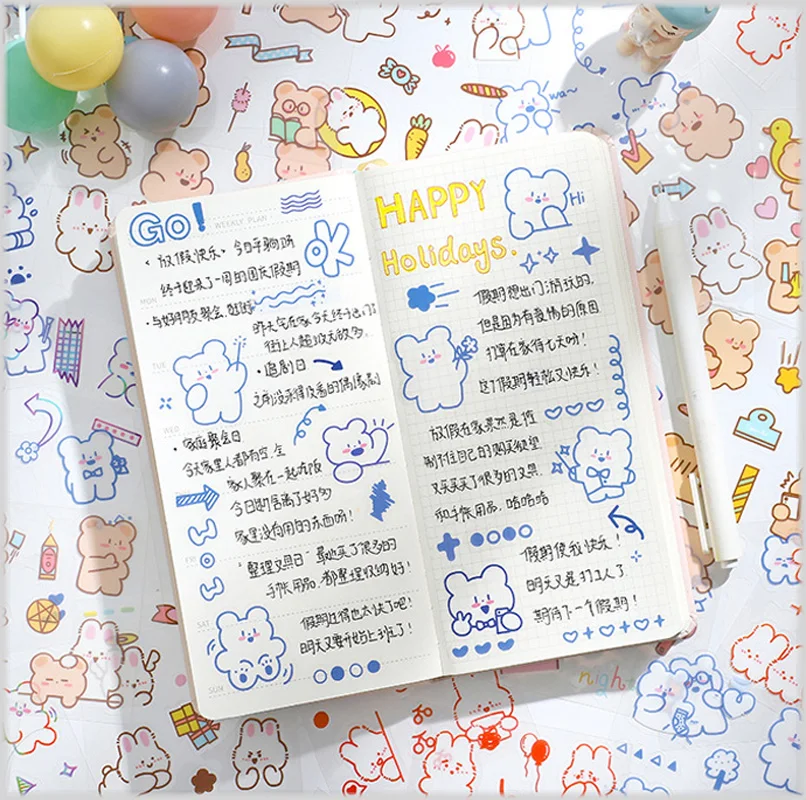 Go!
WEEKLY PLAN
"放假快乐" 今日平躺吗
OK
终于迎来了一周的国庆假期
MON
·与好朋友聚会
昨天宅在家今天终于出门了
街上人超级无敌多
TUE
·追剧1日
WED
·家庭聚会日
今天家里人都有空
家人聚在一起吃饭
今日断舍离了好多
家里没有用的东西呀!
wow
FRI
"整理文具日" 最近买了很多的
手帐用品,都整理收纳好!
SAT
假期过得也太快了吧!
明天又要开始上班了!
SUN
HAPPY
Holidays.
Hi
假期想出门游玩的,
但是因为有疫情的原因
打算在家待七天呀!
这个假期轻松又快乐!
放假在家果然是控
制不住自己的购买欲望
又买买了很多的文具
和手帐用品,哈哈哈
假期使我快乐!
明天又是打工人了
期待下一个假期!
wa~
nigh